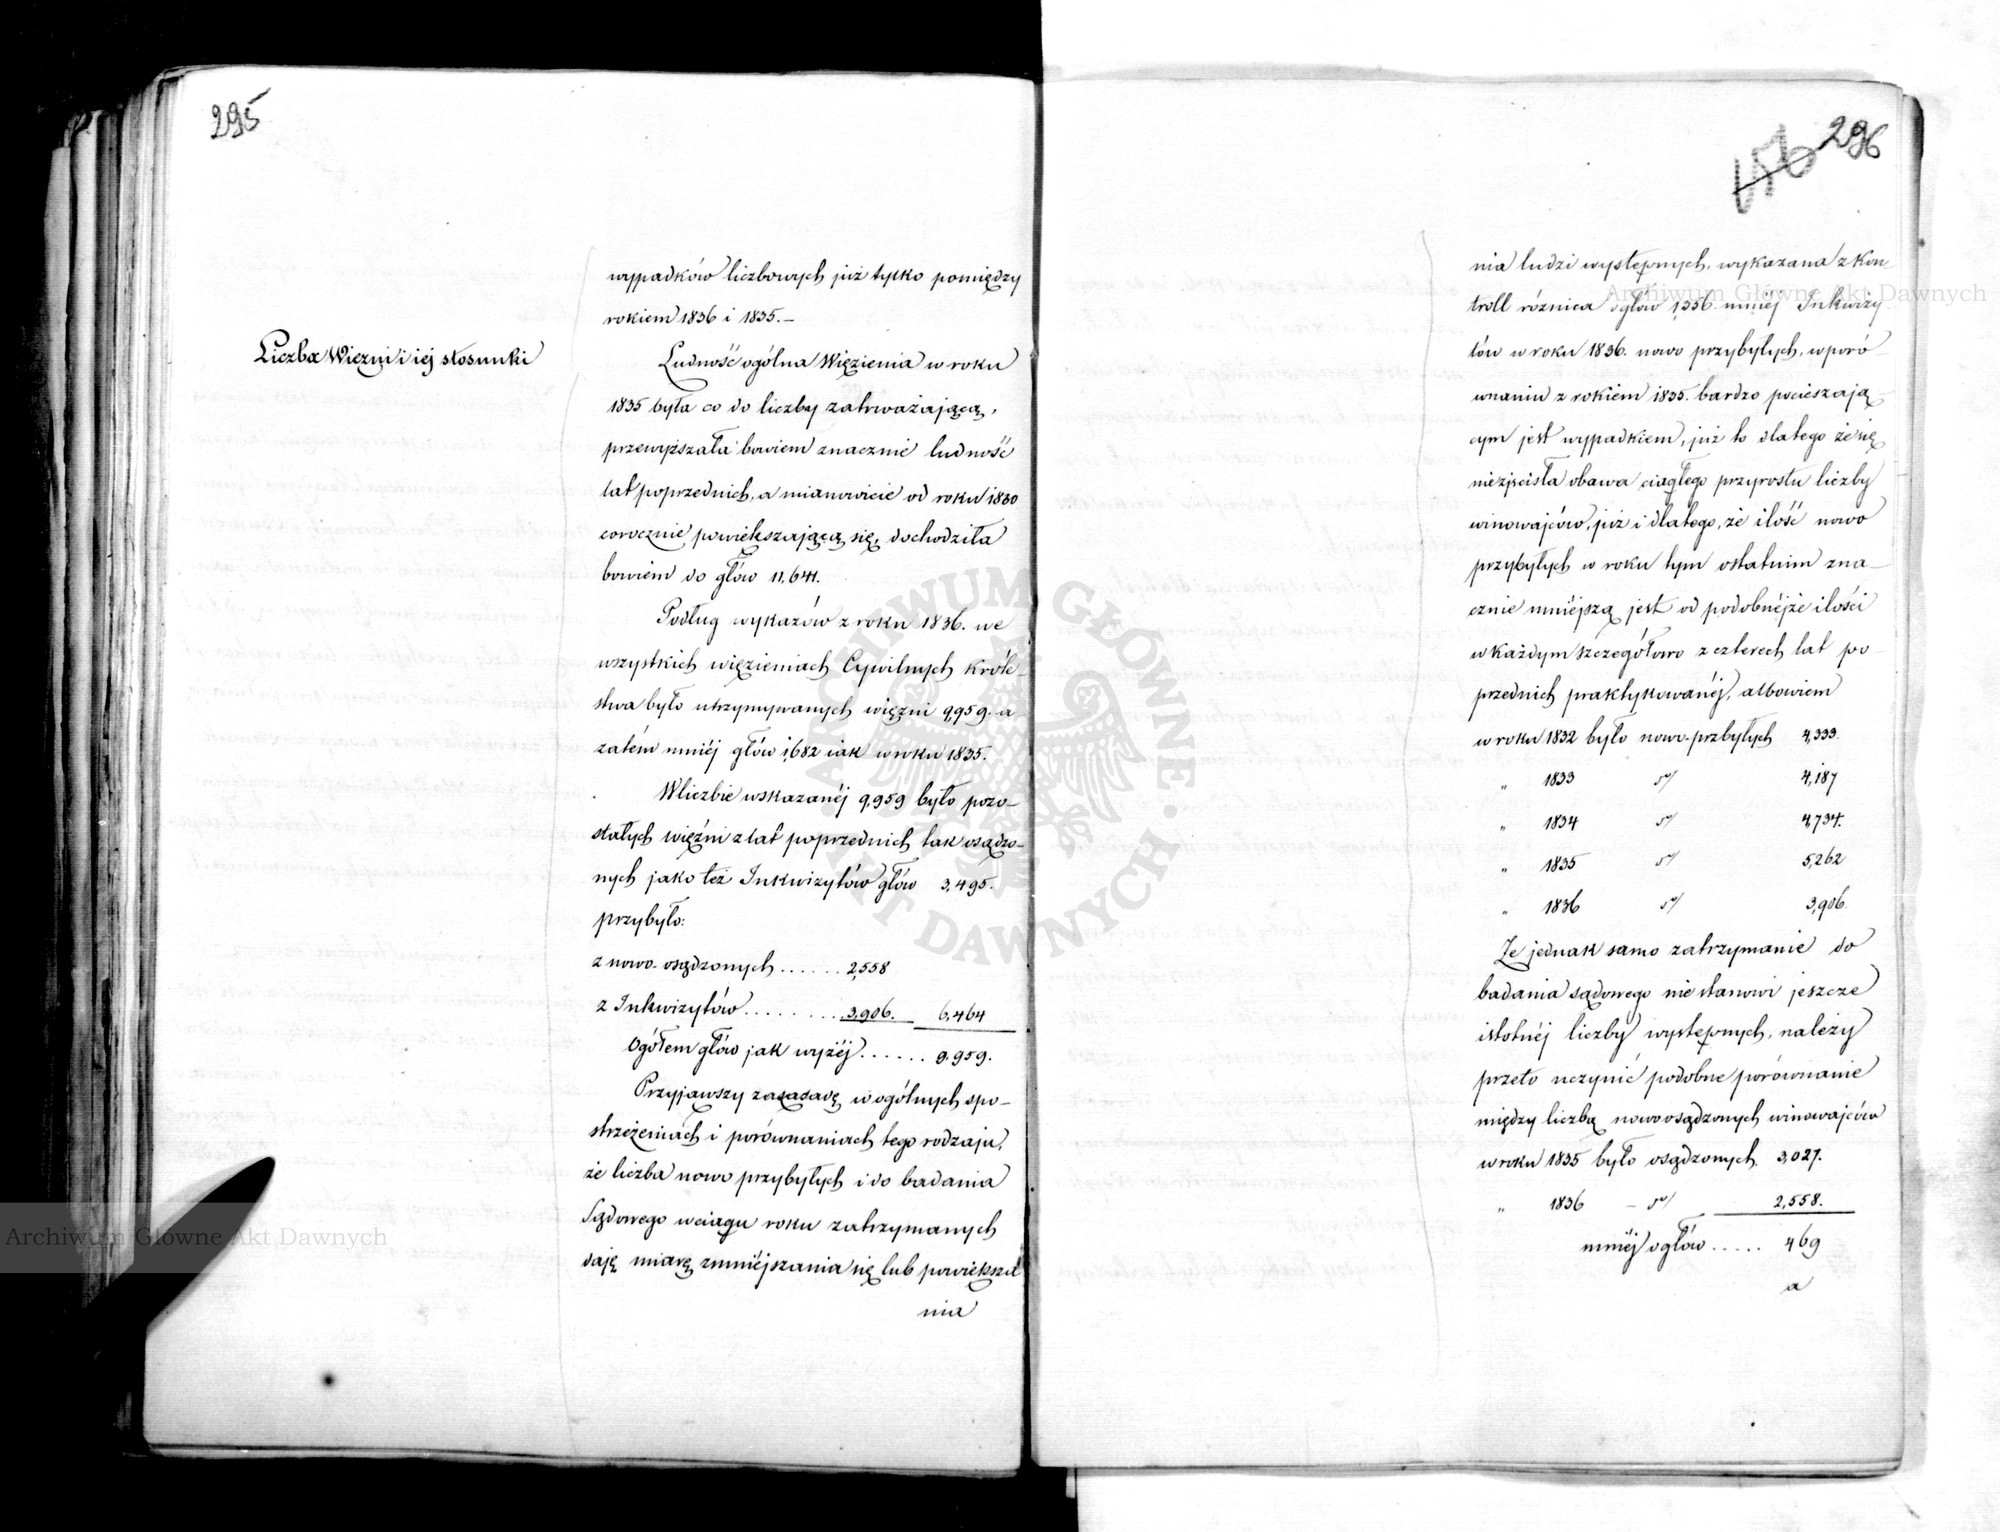 295
Liczba Więzni i iej stosunki
wypadków liczbowych już tylko pomiędzy
rokiem 1836 i 1835.—
Ludność ogólna Więzienia w roku
1835 była co do liczby zatrważającą,
przewyższała bowiem znacznie ludność
lat poprzednich, a mianowicie od roku 1830
corocznie powiększającą się, dochodziła
bowiem do głów 11,641.
Podług wykazów z roku 1836. we
wszystkich więzieniach Cywilnych Króle-
stwa było utrzymywanych więzni 9,959. a
zatém mniéj głów 1,682 iak w roku 1835.
W liczbie wskazanéj 9,959 było pozo-
stałych więźni z lat poprzednich tak osądzo-
nych jako też Inkwizytów głów 3,495.
przybyło:
z nowo-osądzonych ...... 2,558
z Inkwizytów ......... 3,906. 6,464
Ogółem głów jak wyżéj ...... 9,959.
Przyjąwszy za zasadę w ogólnych spo-
strzeżeniach i porównaniach tego rodzaju,
że liczba nowo przybyłych i do badania
Sądowego w ciągu roku zatrzymanych
daję miarę zmniéjszania się lub powiększa
nia
296
nia ludzi występnych, wykazana z Kon-
troll róznica ogłów 1,356. mniéj Inkwizy-
tów w roku 1836. nowo przybyłych, w poró-
wnaniu z rokiem 1835. bardzo pocieszają-
cym jest wypadkiem, już to dlatego że się
nieziściła obawa ciągłego przyrostu liczby
winowajców, już i dlatego, że ilość nowo
przybyłych w roku tym ostatnim zna-
cznie mniéjszą jest od podobnéjże ilości
w każdym szczegółowo z czterech lat po-
przednich praktykowanéj, albowiem
w roku 1832 było nowo-przbyłych 4,333.
" 1833 do/ 4,187
" 1834 do/ 4,734.
" 1835 do/ 5,262
" 1836 do/ 3,906.
Że jednak samo zatrzymanie do
badania sądowego nie stanowi jeszcze
istotnéj liczby występnych, należy
przeto uczynić podobne porównanie
między liczbą nowo osądzonych winowajców
w roku 1835 było osądzonych 3,027.
" 1836 — do/ 2,558.
mniéj ogłów ..... 469
a
Archiwum Główne Akt Dawnych
Archiwum Główne Akt Dawnych
ARCHIWUM GŁÓWNE · AKT DAWNYCH ·